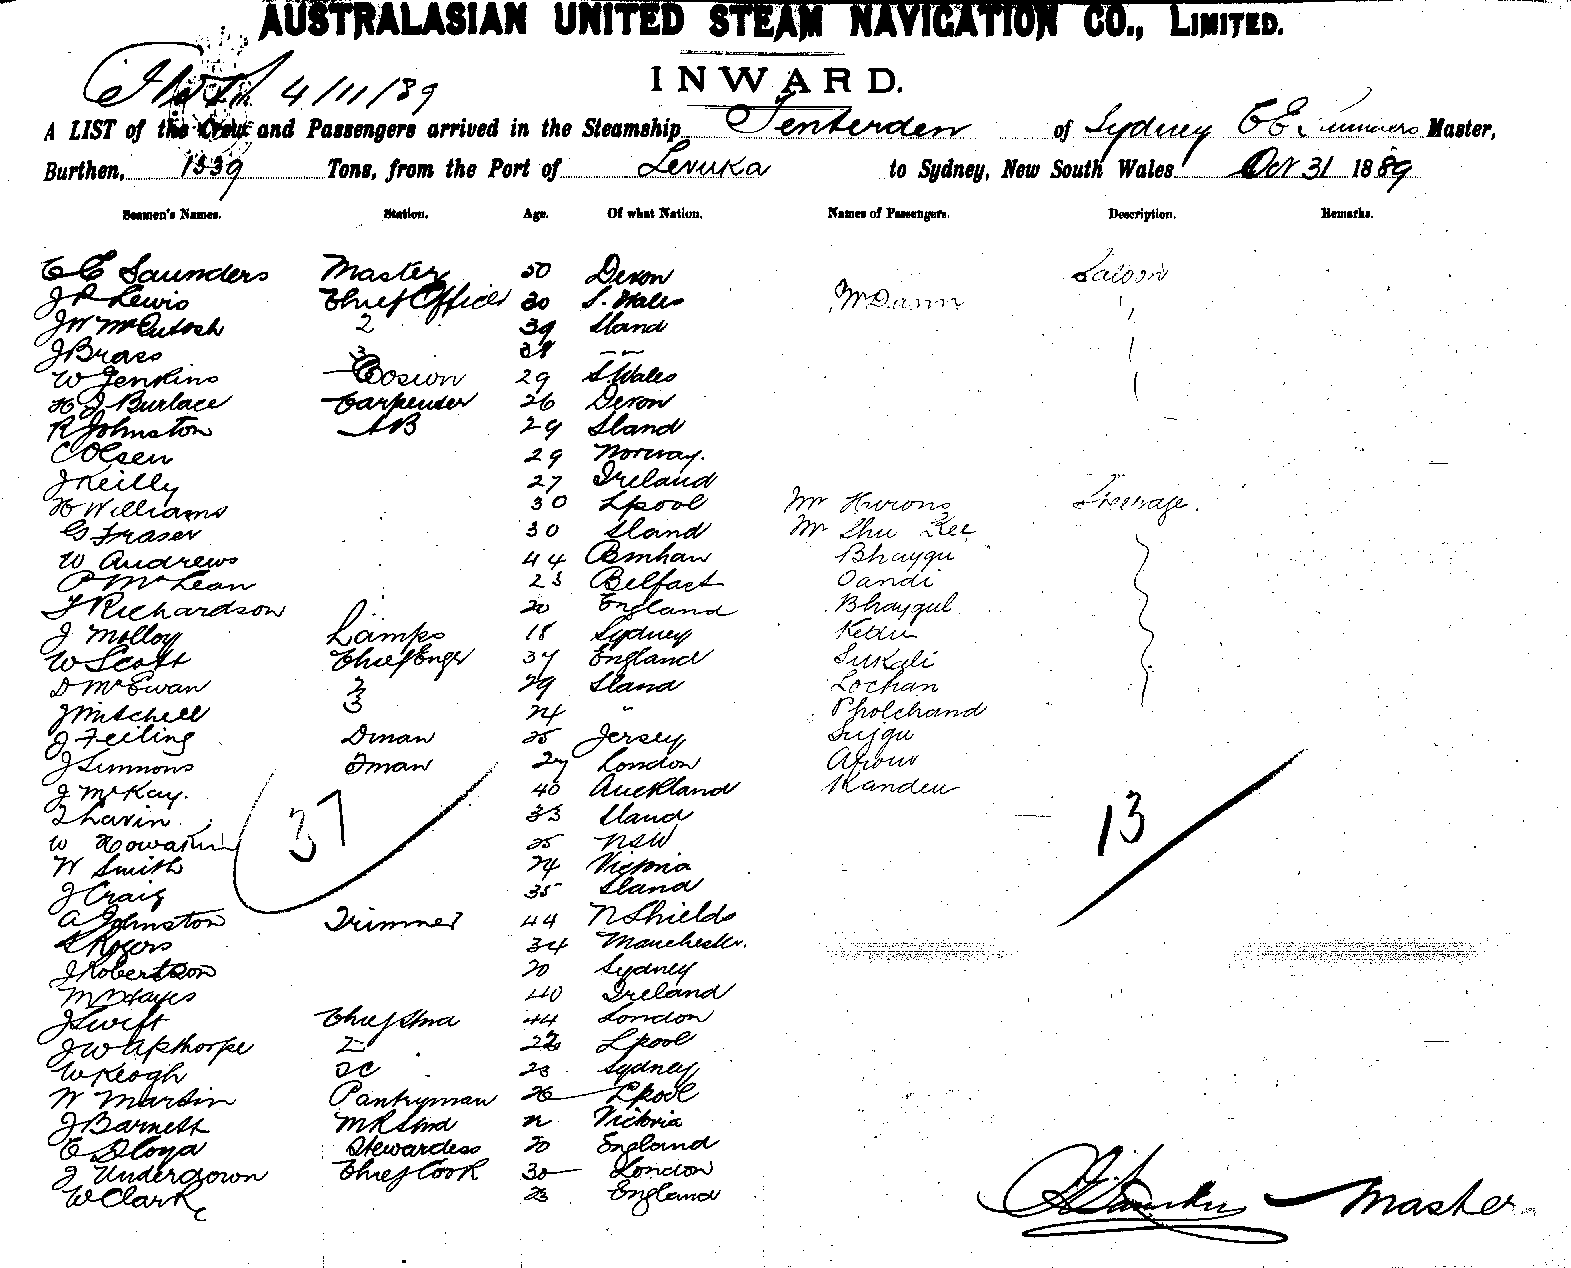 AUSTRALASIAN UNITED STEAM NAVIGATION CO., LIMITED.
INWARD.
4/11/89
A LIST of the Crew and Passengers arrived in the Steamship Tenterden of Sydney C E Master,
Burthen, 1339 Tons, from the Port of Levuka to Sydney, New South Wales Oct 31 1889
Seamen's Names. Station. Age. Of what Nation. Names of Passengers. Description. Remarks.
C E Saunders Master 50 Devon Saloon
J P Lewis Chief Officer 30 S. Wales Mr Dann
J W McIntosh 2 39 Sland
J Brass 3 38 — —
W Jenkins Bosion 29 S Wales
H J Burlace Carpenter 26 Devon
R Johnston AB 29 Sland
C Olsen 29 Norway.
J Reilly 27 Ireland
H Williams 30 Lpool Mr Hurons Steerage.
G Fraser 30 Sland Mr Shu Kee
W Andrews 44 Bmhan Bhaygu
P McLean 23 Belfast Oandi
F Richardson 20 England Bhaygul
J Molloy Lamps 18 Sydney
W Scott Chief Engr 37 England Sukali
D McEwan 2 29 Sland Lochan
J Mitchell 3 24 " Pholchand
J Feiling Dman 25 Jersey Sujgu
J Simmons Fman 27 London
J McKay. 40 Auckland Kandeu
33 Sland
W 25 NSW
W Smith 24 Victoria
J Craig 35 Sland
37
13
A Johnston Trimmer 44 N Shields
Rogers 34 Manchester.
J Robertson 20 Sydney
M Hayes 40 Ireland
J Swift Chief Stwd 44 London
J W Apthorpe 2 22 Lpool
W Keogh SC 23 Sydney
W Martin Pantryman 26 Lpool
J Barnett M R Stwd Victoria
E Sloya Stewardess 30 England
J Underdown Chief Cook 30 London
W Clark 23 England
Master